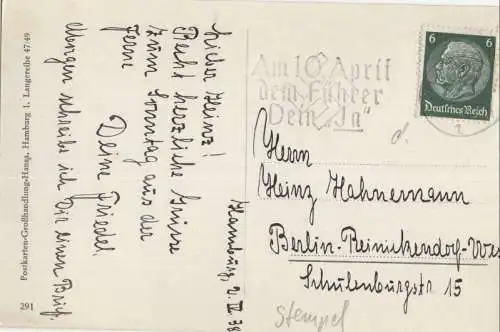 Hamburg, 2. IV. 38
Lieber Heinz!
Recht herzliche Grüsse
zum Sonntag aus der
Ferne
Deine Friedel.
Morgen schreibe ich Dir einen Brief.
Postkarten-Großhandlung-Hansa, Hamburg 1, Langereihe 47-49
291
Am 10. April
dem Führer
Dein „Ja"
6 6
Deutsches Reich
d.
Herrn
Heinz Hahnemann
Berlin-Reinickendorf-Wes
Schulenburgstr. 15
Stempel